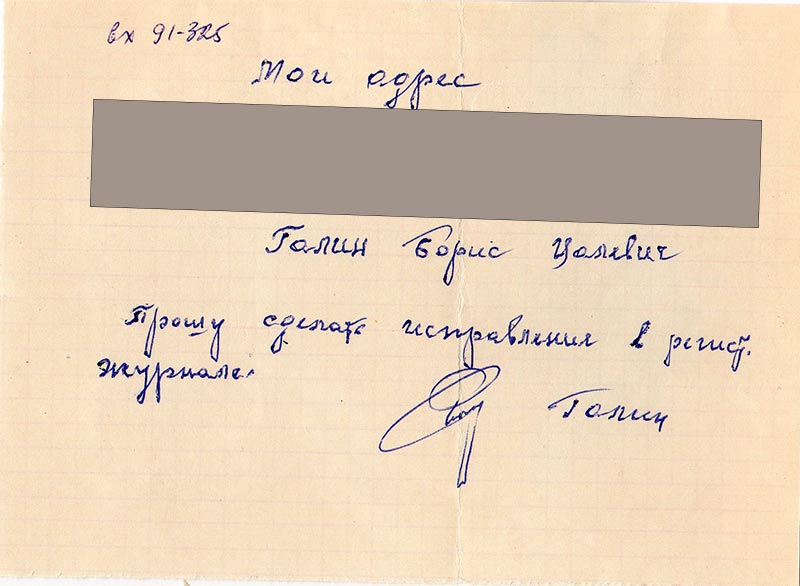 вх 91-325
Мой адрес
Галин Борис Цалевич
Прошу сделать исправления в регист.
журнале.
Галин